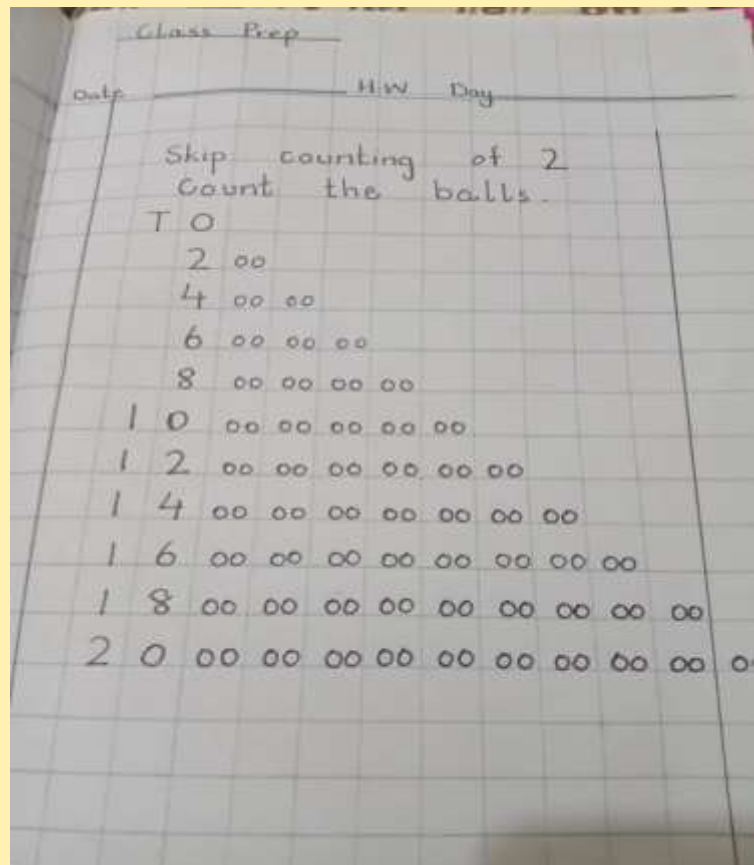 Class Prep
Date H.W Day
Skip counting of 2
Count the balls.
T O
2 oo
4 oo oo
6 oo oo oo
8 oo oo oo oo
1 0 oo oo oo oo oo
1 2 oo oo oo oo oo oo
1 4 oo oo oo oo oo oo oo
1 6 oo oo oo oo oo oo oo oo
1 8 oo oo oo oo oo oo oo oo oo
2 0 oo oo oo oo oo oo oo oo oo o